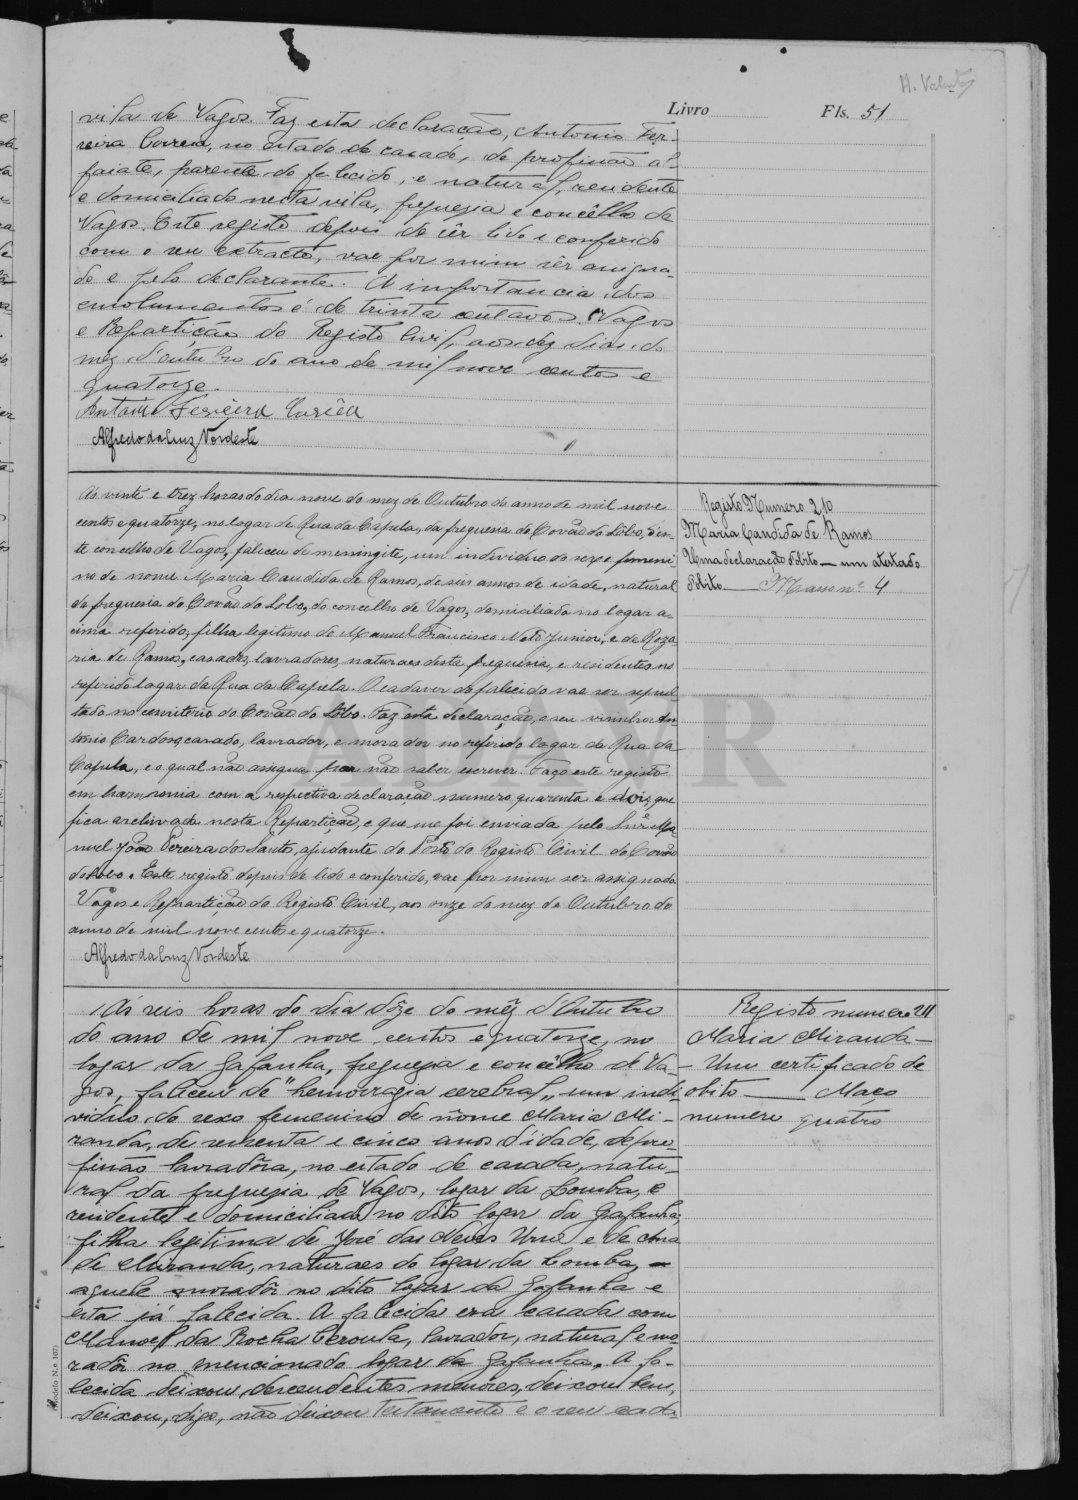 H. Valente
Livro Fls. 51
vila de Vagos. Faz esta declaração, Antonio Fer-
reira Correia, no estado de casado, de profissão al-
faiate, parente do falecido, e natural, residente
e domiciliado nesta vila, freguezia e concêlho de
Vagos. Este registo depois de sêr lido e conferido
com o seu extracto, vae por mim sêr assigna-
do e pelo declarante. A importancia dos
emolumentos é de trinta centavos. Vagos
e Repartição do Registo Civil, aos dez dias do
mez d'outubro do ano de mil nove centos e
quatorze.
Antonio Ferreira Corrêa
Alfredo da Cruz Nordeste
Ás vinte e trez horas do dia nove do mez de Outubro do anno de mil nove
centos e quatorze, no logar de Rua da Capela, da freguesia do Covão do Lobo, d'es-
te concelho de Vagos, faliceu de meningite, um individuo do sexo femeni-
no de nome Maria Candida de Ramos, de seis annos de idade, natural
da freguesia do Covão do Lobo, do concelho de Vagos, domiciliada no logar a-
cima referido, filha legitima de Manuel Francisco Neto Junior, e de Roza-
ria de Ramos, casados, lavradores, naturaes desta freguesia, e residentes no
referido logar da Rua da Capela. O cadaver do falicido vae ser sepul-
tado no cemiterio do Covão do Lobo. Faz esta declaração, o seu visinho An-
tonio Cardoso, casado, lavrador, e morador no referido logar de Rua da
Capela, e o qual não assigna por não saber escrever. Faço este registo
em harmonia com a respectiva declaração numero quarenta e dois, que
fica archivada nesta Repartição, e que me foi enviada pelo Snr. Ma-
nuel João Pereira dos Santos, ajudante do Posto do Registo Civil do Covão
do Lobo. Este registo depois de lido e conferido, vae por mim ser assignado.
Vagos e Repartição do Registo Civil, aos onze do mez de Outubro do
anno de mil nove centos e quatorze.
Alfredo da Cruz Nordeste
Registo Numero 210
Maria Candida de Ramos
Uma declaração d'obito — um atestado
d'obito — Masso nº 4
Ás seis horas do dia dôze do mêz d'Outubro
do ano de mil nove centos e quatorze, no
logar da Gafanha, freguezia e concêlho de Va-
gos, faliceu de "hemorragia cerebral" um indi-
viduo do sexo femenino de nome Maria Mi-
randa, de sessenta e cinco anos d'idade, de pro-
fissão lavradôra, no estado de casada, natu-
ral da freguezia de Vagos, logar da Lomba, e
residente e domiciliada no dito logar da Gafanha,
filha legitima de José das Neves Uno e de Ana
de Miranda, naturaes do logar da Lomba,
aquele moradôr no dito logar da Gafanha e
esta já falecida. A falecida era casada com
Manoel da Rocha Ceroula, lavrador, natural e mo-
radôr no mencionado logar da Gafanha. A fa-
lecida deixou descendentes menores, deixou bens,
deixou, digo, não deixou testamento e o seu cada-
Registo numero 211
Maria Miranda —
— Um certificado de
obito — Maço
numero quatro
(Modelo N.º 107)
ADAVR